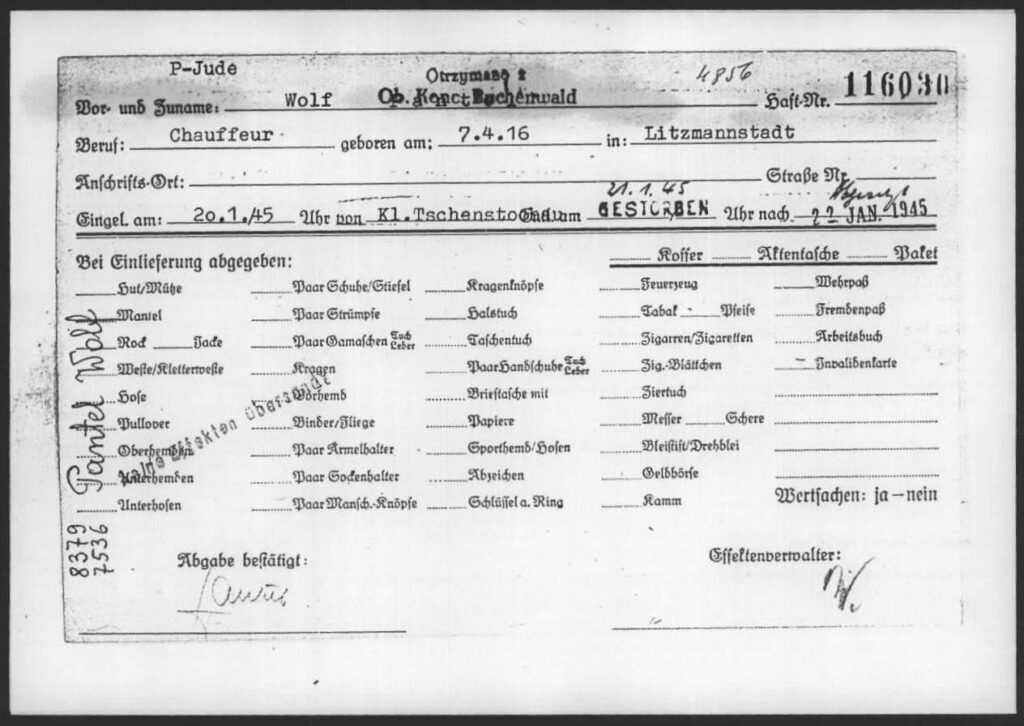 P-Jude
Otrzymano z
4856
116030
Vor- und Zuname: Wolf Ob. Konct. Buchenwald Haft-Nr.
Beruf: Chauffeur geboren am: 7.4.16 in: Litzmannstadt
Anschrifts-Ort: Straße Nr.
21.1.45
Eingel. am: 20.1./45 Uhr von Kl. Tschenstochau am GESTORBEN Uhr nach 22 JAN. 1945
Bei Einlieferung abgegeben: Koffer Aktentasche Paket
Hut/Mütze Paar Schuhe/Stiefel Kragenknöpfe Feuerzeug Wehrpaß
Mantel Paar Strümpfe Halstuch Tabak Pfeife Fremdenpaß
Rock Jacke Paar Gamaschen Tuch Leder Taschentuch Zigarren/Zigaretten Arbeitsbuch
Weste/Kletterweste Kragen Paar Handschuhe Tuch Leder Zig.-Blättchen Invalidenkarte
Hose Vorhemd Brieftasche mit Ziertuch
Pullover Binder/Fliege Papiere Messer Schere
Oberhemden Paar Armelhalter Sporthemd/Hosen Bleistift/Drehblei
Unterhemden Paar Sockenhalter Abzeichen Geldbörse
Unterhosen Paar Mansch.-Knöpfe Schlüssel a. Ring Kamm Wertsachen: ja – nein
Keine Effekten übersandt
Pantel Wolf
8379
7536
Abgabe bestätigt: Effektenverwalter: